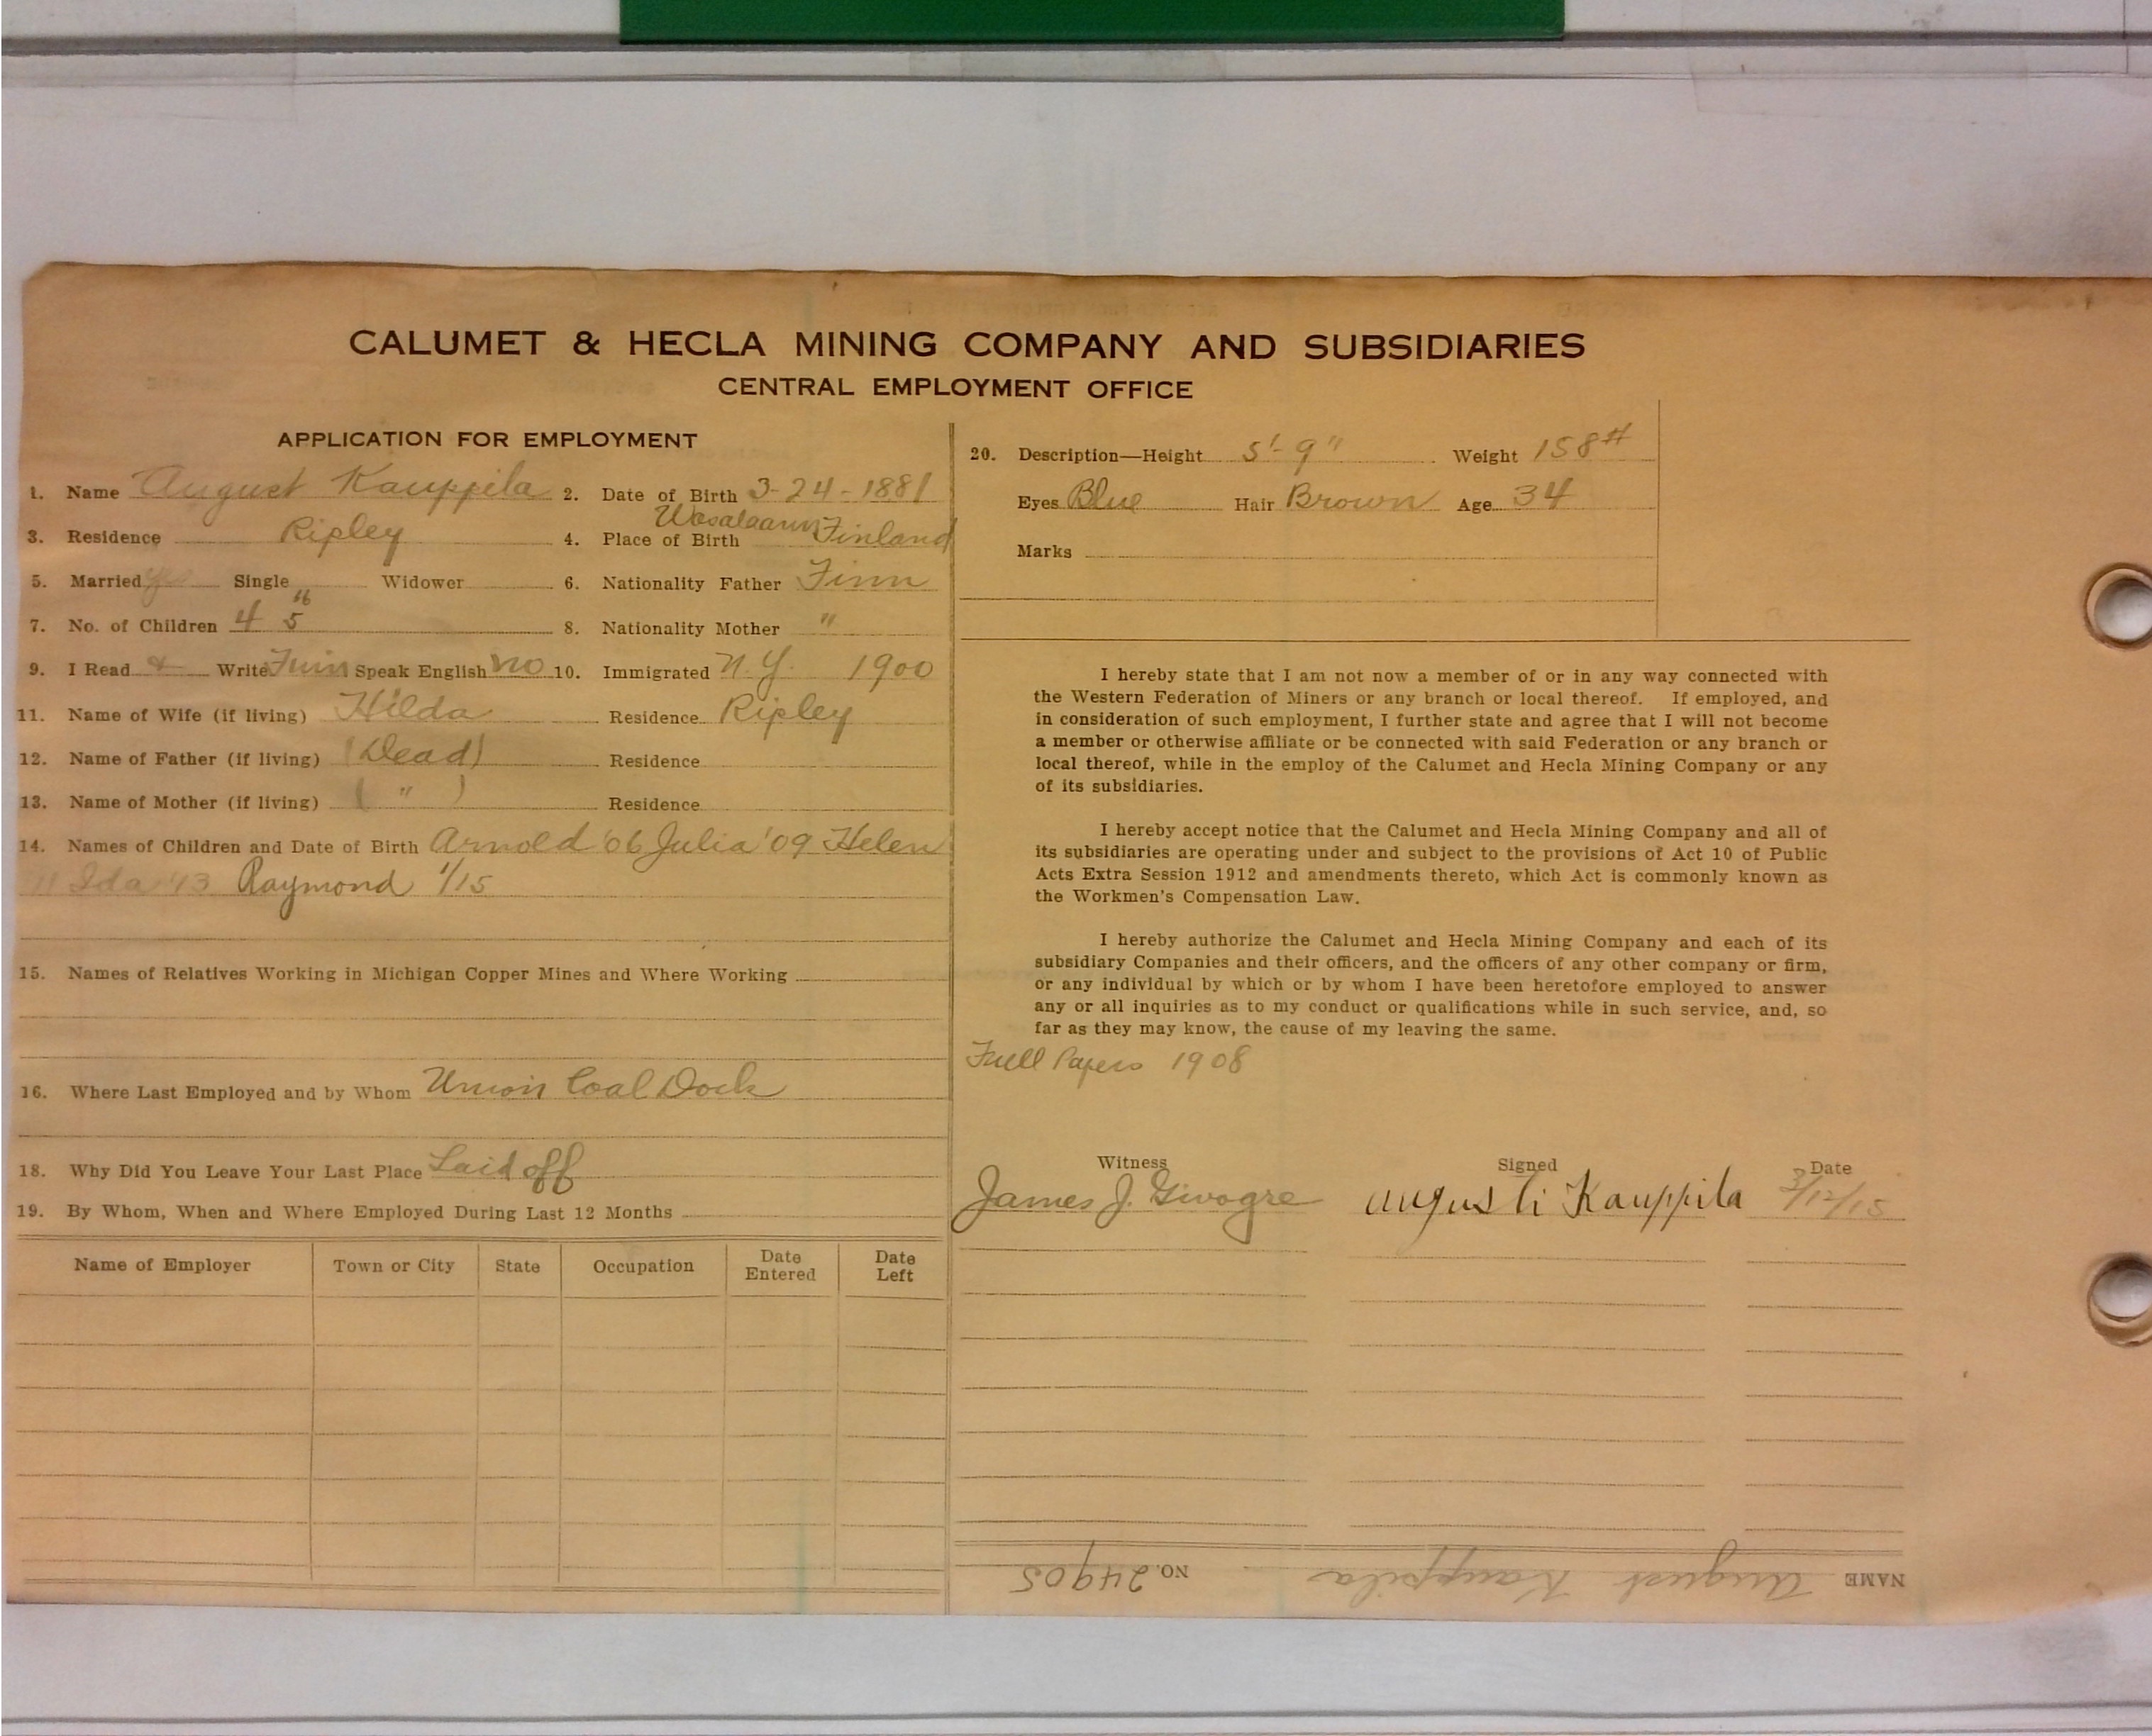 CALUMET & HECLA MINING COMPANY AND SUBSIDIARIES
CENTRAL EMPLOYMENT OFFICE
APPLICATION FOR EMPLOYMENT
1. Name August Kauppila 2. Date of Birth 3-24-1881
3. Residence Ripley 4. Place of Birth Finland
5. Married Yes Single Widower 6. Nationality Father Finn
7. No. of Children 4 5 8. Nationality Mother "
9. I Read & Write Finn Speak English no 10. Immigrated N.Y. 1900
11. Name of Wife (if living) Hilda Residence Ripley
12. Name of Father (if living) (Dead) Residence
13. Name of Mother (if living) ( " ) Residence
14. Names of Children and Date of Birth Arnold '06 Julia '09 Helen
'11 Ida '13 Raymond 1/15
15. Names of Relatives Working in Michigan Copper Mines and Where Working
16. Where Last Employed and by Whom Union Coal Dock
18. Why Did You Leave Your Last Place Laid off
19. By Whom, When and Where Employed During Last 12 Months
Name of Employer Town or City State Occupation Date Entered Date Left
20. Description—Height 5'-9" Weight 158#
Eyes Blue Hair Brown Age 34
Marks
I hereby state that I am not now a member of or in any way connected with
the Western Federation of Miners or any branch or local thereof. If employed, and
in consideration of such employment, I further state and agree that I will not become
a member or otherwise affiliate or be connected with said Federation or any branch or
local thereof, while in the employ of the Calumet and Hecla Mining Company or any
of its subsidiaries.
I hereby accept notice that the Calumet and Hecla Mining Company and all of
its subsidiaries are operating under and subject to the provisions of Act 10 of Public
Acts Extra Session 1912 and amendments thereto, which Act is commonly known as
the Workmen's Compensation Law.
I hereby authorize the Calumet and Hecla Mining Company and each of its
subsidiary Companies and their officers, and the officers of any other company or firm,
or any individual by which or by whom I have been heretofore employed to answer
any or all inquiries as to my conduct or qualifications while in such service, and, so
far as they may know, the cause of my leaving the same.
Full Papers 1908
Witness Signed Date
James J. augusti Kauppila 3/12/15
NAME August Kauppila NO. 24905